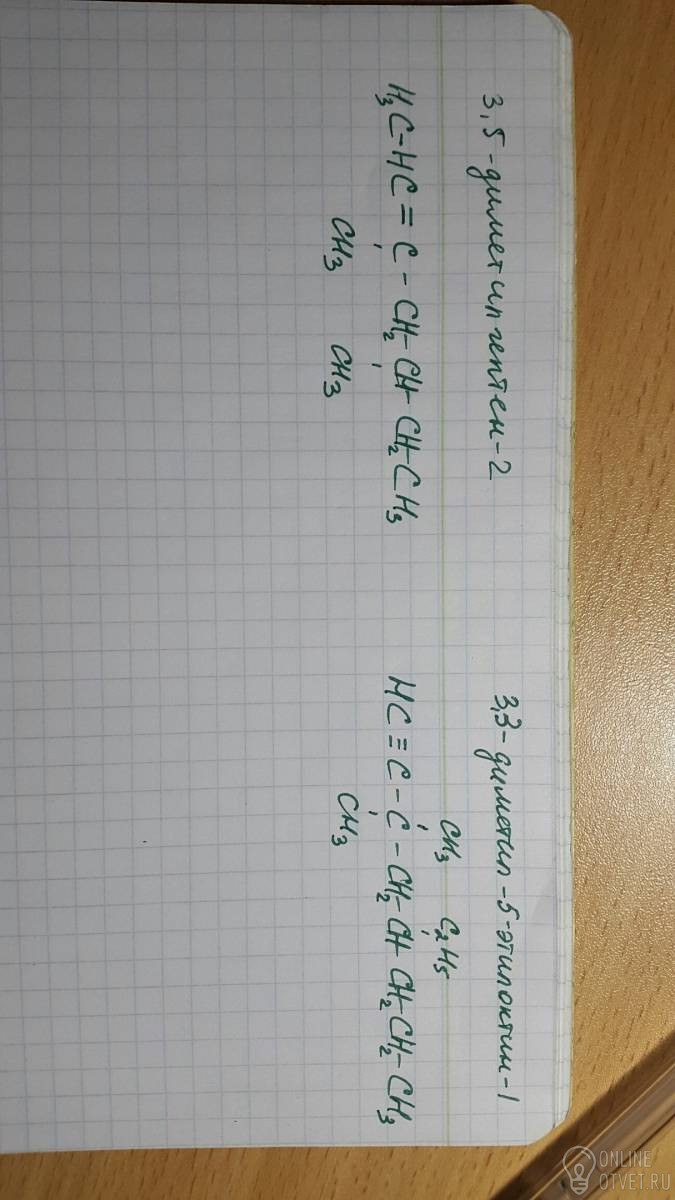 3,5-диметилгептен-2
H₃C-HC=C-CH₂-CH-CH₂-CH₃
CH₃ CH₃
3,3-диметил-5-этилоктин-1
CH₃ C₂H₅
HC≡C-C-CH₂-CH-CH₂-CH₂-CH₃
CH₃
ONLINE
OTVET.RU